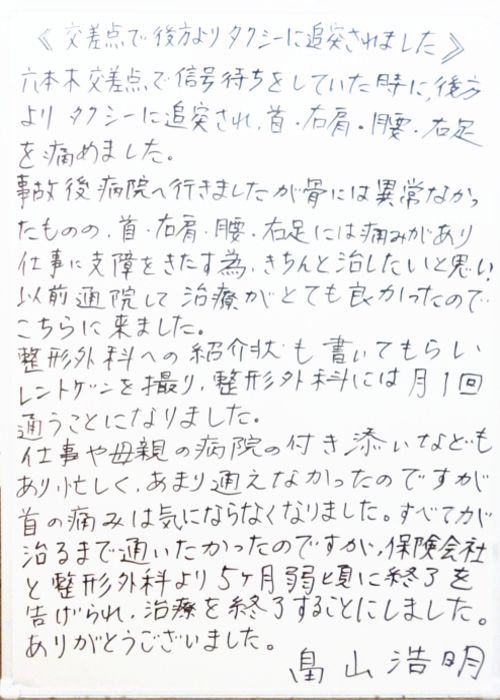 《交差点で後方よりタクシーに追突されました》
六本木交差点で信号待ちをしていた時に、後方
よりタクシーに追突され、首・右肩・腰・右足
を痛めました。
事故後病院へ行きましたが骨には異常なかっ
たものの、首・右肩・腰・右足には痛みがあり
仕事に支障をきたす為、きちんと治したいと思い
以前通院して治療がとても良かったので
こちらに来ました。
整形外科への紹介状も書いてもらい
レントゲンを撮り、整形外科には月1回
通うことになりました。
仕事や母親の病院の付き添いなども
あり忙しく、あまり通えなかったのですが
首の痛みは気にならなくなりました。すべてが
治るまで通いたかったのですが、保険会社
と整形外科より5ヶ月弱頃に終了を
告げられ、治療を終了することにしました。
ありがとうございました。
畠山浩明